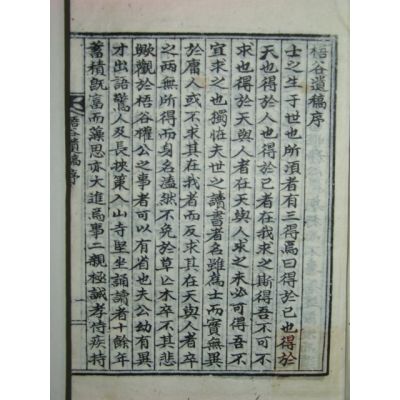 梧谷遺稿序
士之生于世也所須者有三得焉曰得於己也得於
天也得於人也得於己者在我求之斯得吾不可不
求也得於天與人者在天與人求之未必可得吾不
宜求之也獨恠夫世之讀書者名雖爲士而實無異
於庸人或不求其在我者而反求其在天與人者卒
之兩無所得而身名溘然不免於草亾木卒不其悲
歟觀於梧谷權公之事者可以有省也夫公幼有異
才出語驚人及長挾策入山寺堅坐誦讀者十餘年
蓄積旣富而藻思亦大進焉事二親極誠孝侍疾持
梧谷遺稿 序